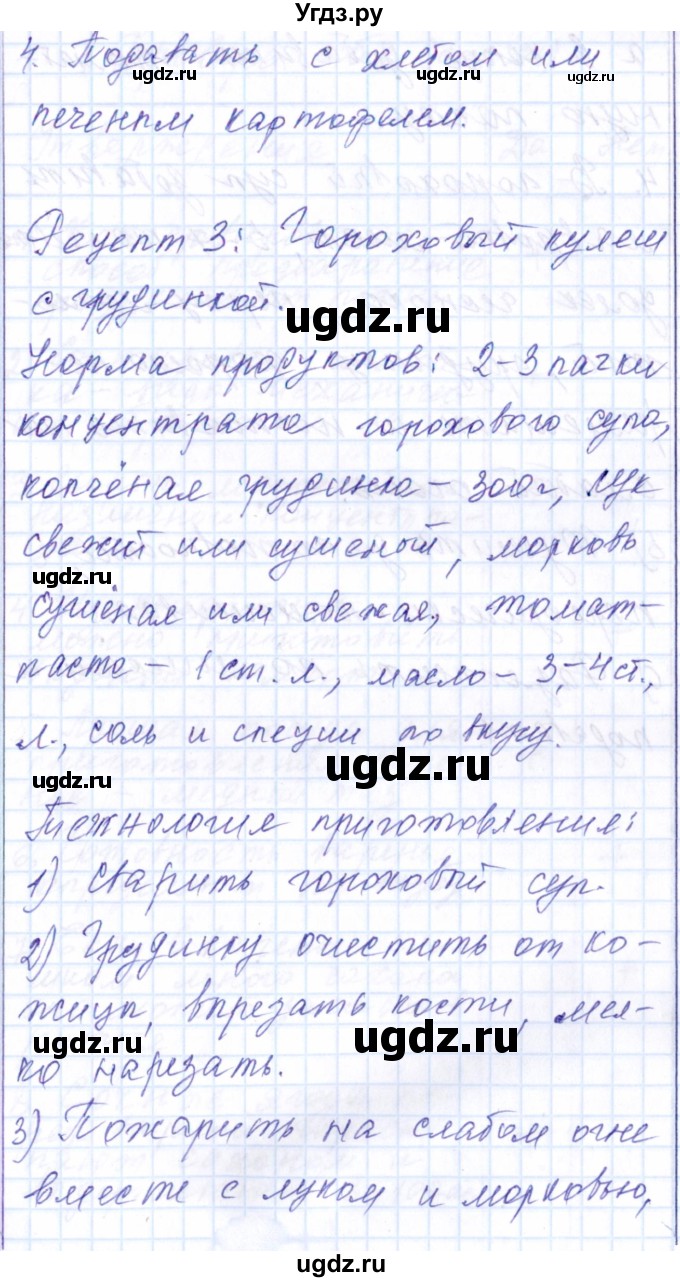 Угдз.ру
4. Подавать с хлебом или
ugdz.ru ugdz.ru
печеным картофелем.
Рецепт 3: Гороховый кулеш
с грудинкой.
ugdz.ru
Норма продуктов: 2-3 пачки
концентрата горохового супа,
копчёная грудинка - 300 г, лук
свежий или сушеный, морковь
ugdz.ru
сушёная или свежая, томат-
паста - 1 ст. л., масло - 3,-4 ст.,
л., соль и специи по вкусу.
ugdz.ru
ugdz.ru
Технология приготовления:
1) Сварить гороховый суп.
ugdz.ru
2) Грудинку очистить от ко-
жицы, вырезать кости, мел-
ugdz.ru ugdz.ru
ко нарезать.
3) Пожарить на слабом огне
вместе с луком и морковью,
ugdz.ru